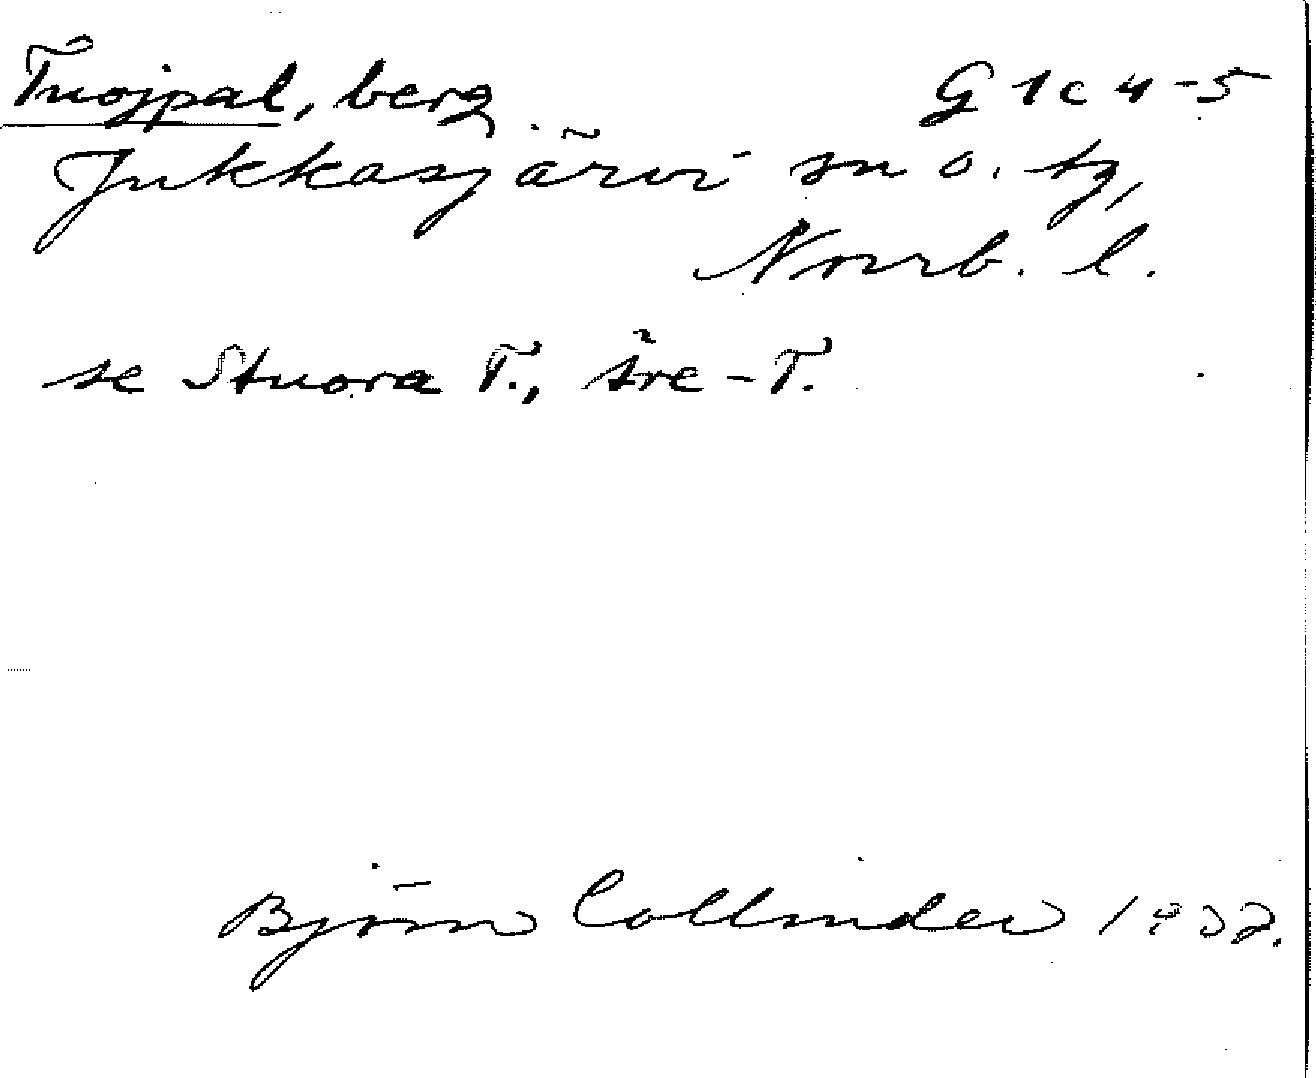 Tuojpal, berg G 1c 4-5
Jukkasjärvi sn o. tg,
Norrb. l.
se Stuora T., -T.
Björn Collinder